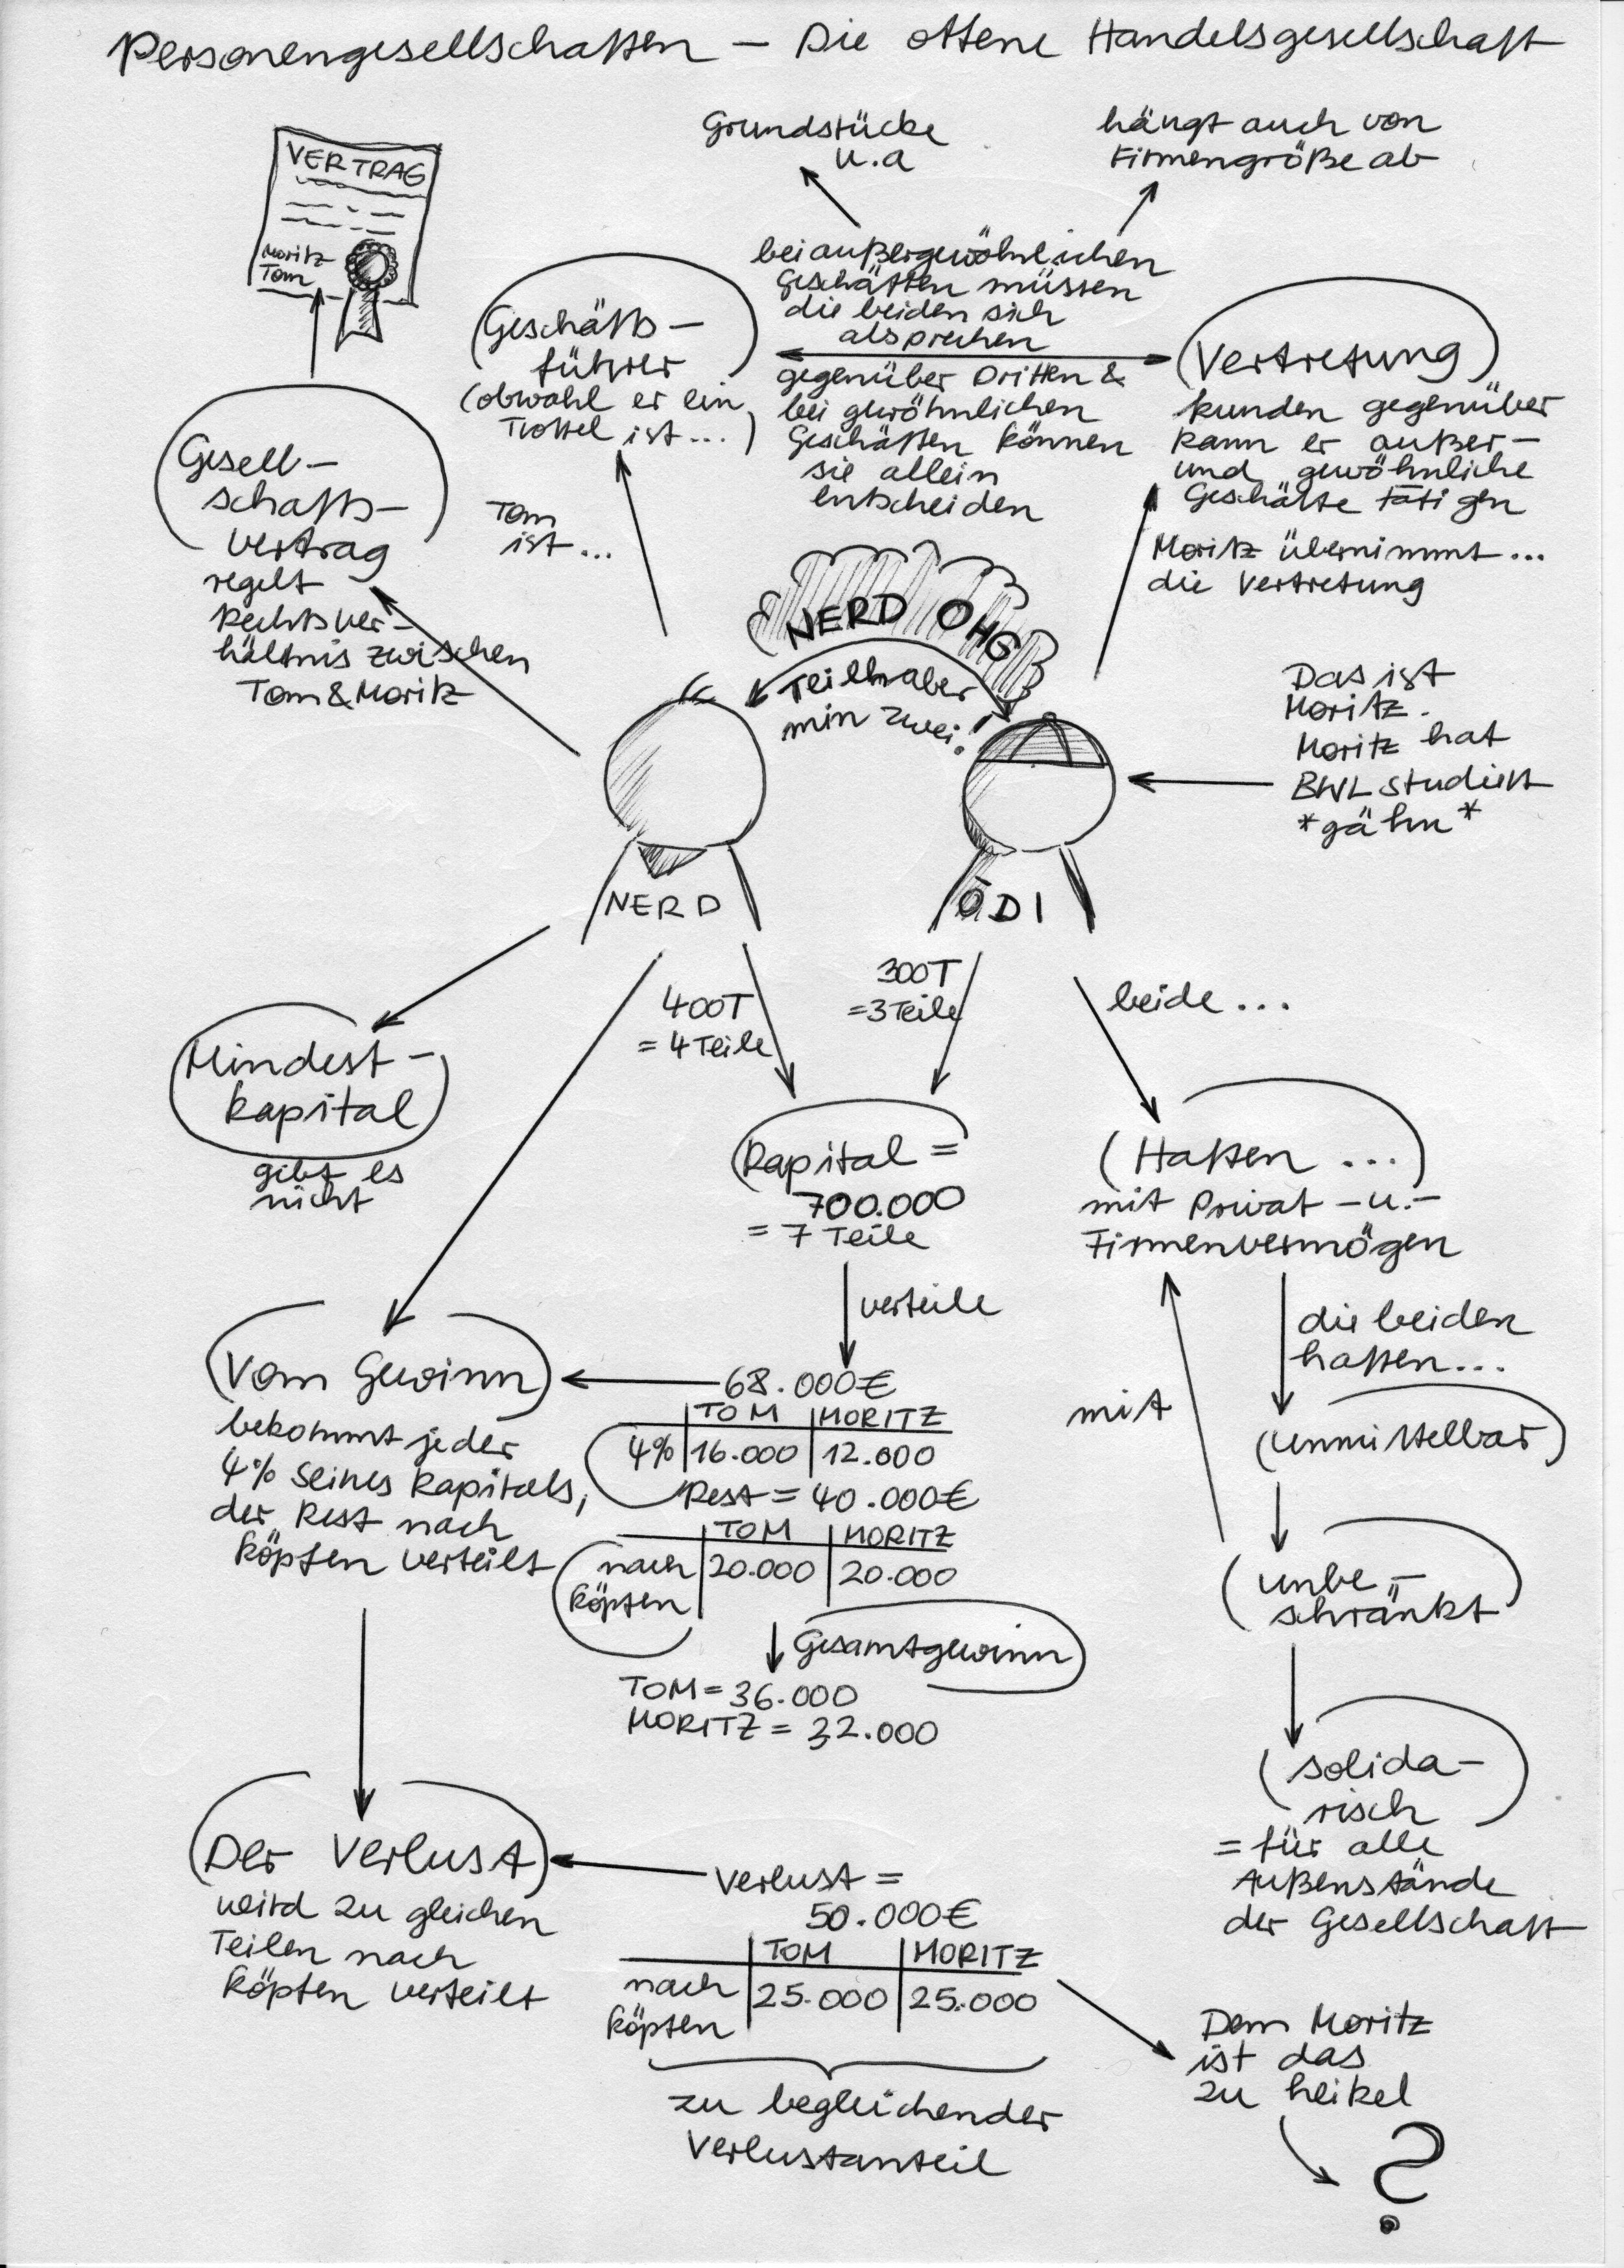 Personengesellschaften – Die offene Handelsgesellschaft
VERTRAG
Moritz
Tom
Grundstücke
u.a
hängt auch von
Firmengröße ab
bei außergewöhnlichen
Geschäften müssen
die beiden sich
absprechen
gegenüber Dritten &
bei gewöhnlichen
Geschäften können
sie allein
entscheiden
Geschäfts–
führer
(obwohl er ein
Trottel ist...)
Tom
ist...
Vertretung
Kunden gegenüber
kann er außer–
und gewöhnliche
Geschäfte tätigen
Moritz übernimmt...
die Vertretung
Gesell–
schafts–
vertrag
regelt
Rechtsver–
hältnis zwischen
Tom & Moritz
NERD OHG
Teilhaber
min zwei!
Das ist
Moritz.
Moritz hat
BWL studiert
*gähn*
NERD
ÖDI
Mindest–
kapital
gibt es
nicht
400T
= 4 Teile
300T
= 3 Teile
beide...
Kapital =
700.000
= 7 Teile
verteile
Haften ...
mit Privat –u.–
Firmenvermögen
die beiden
haften...
mit
unmittelbar
unbe–
schränkt
solida–
risch
= für alle
Außenstände
der Gesellschaft
Vom Gewinn
bekommt jeder
4% seines Kapitals,
der Rest nach
Köpfen verteilt
68.000€
TOM MORITZ
4% 16.000 12.000
Rest = 40.000€
TOM MORITZ
nach 20.000 20.000
Köpfen
Gesamtgewinn
TOM = 36.000
MORITZ = 32.000
Der Verlust
wird zu gleichen
Teilen nach
Köpfen verteilt
Verlust =
50.000€
TOM MORITZ
nach 25.000 25.000
Köpfen
zu begleichender
Verlustanteil
Dem Moritz
ist das
zu heikel
?